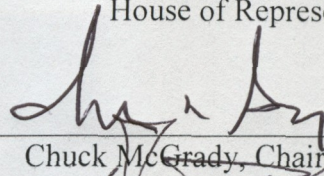 House of Repres
Chuck McGrady, Chair